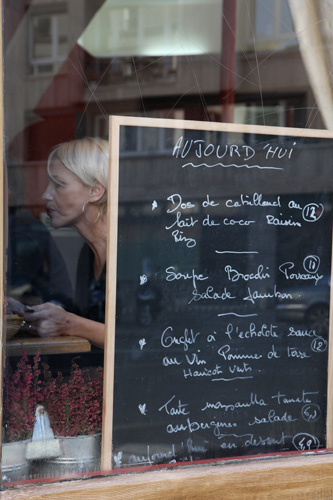 AUJOURD'HUI
* Dos de cabillaud au
lait de coco Raisin 12
Riz
* Soupe Brochi Poireaux 11
Salade Jambon
* à l'échalote sauce
au Vin Pomme de terre 12
Haricots Verts
* Tarte mozzarella tomate
aubergines salade
* aujourd'hui en dessert